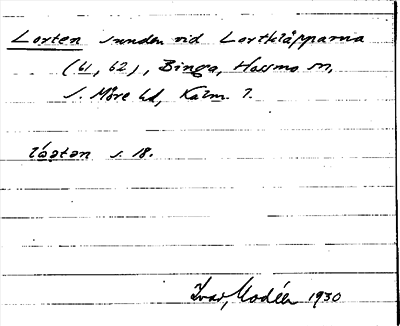 Lorten sunden vid Lortkläpparna
(61, 62), Binga, Hossmo sn,
S. Möre hd, Kalm. l.
s. 18.
Ivar Modéer 1930